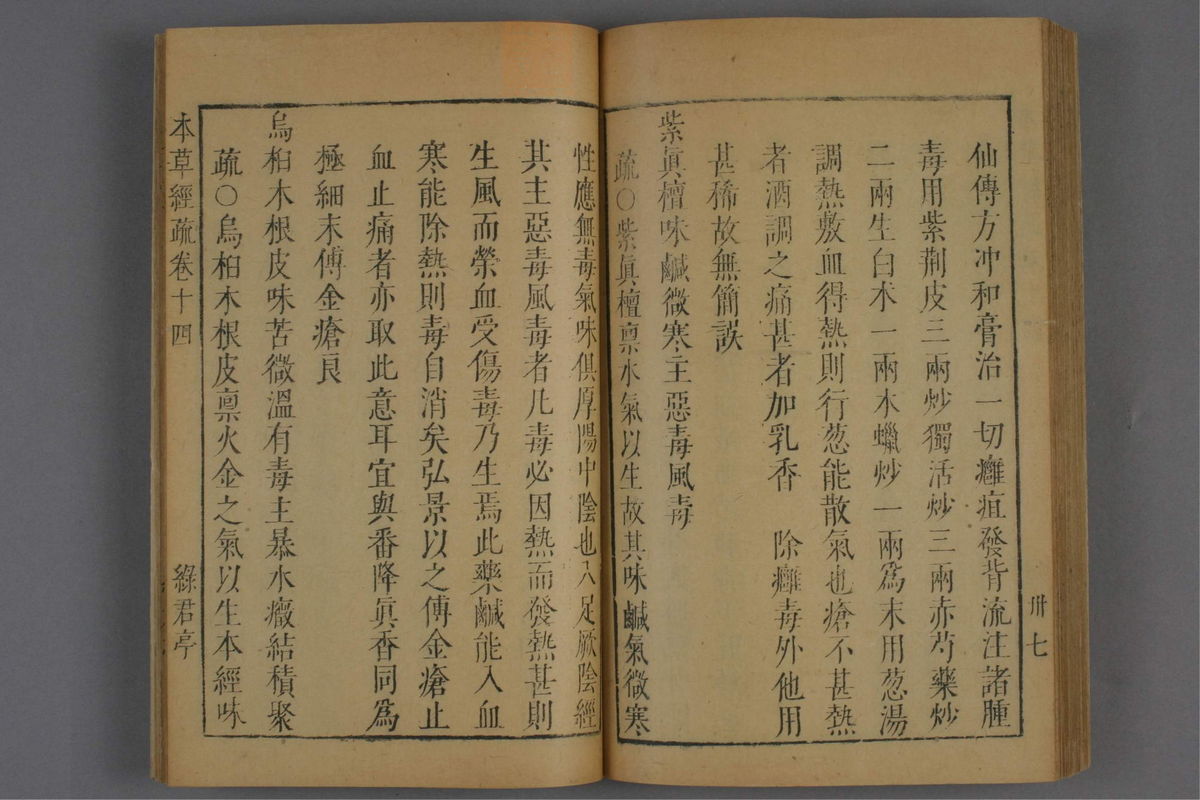 仙傳方冲和膏治一切癰疽發背流注諸腫
毒用紫荆皮三兩炒獨活炒三兩赤芍藥炒
二兩生白术一兩木蠟炒一兩爲末用葱湯
調熱敷血得熱則行葱能散氣也瘡不甚熱
者酒調之痛甚者加乳香 除癰毒外他用
甚稀故無簡誤
紫眞檀味鹹微寒主惡毒風毒
疏○紫眞檀禀水氣以生故其味鹹氣微寒
卅七
性應無毒氣味俱厚陽中陰也入足厥陰經
其主惡毒風毒者凡毒必因熱而發熱甚則
生風而榮血受傷毒乃生焉此藥鹹能入血
寒能除熱則毒自消矣弘景以之傅金瘡止
血止痛者亦取此意耳宜與番降眞香同爲
極細末傅金瘡良
烏桕木根皮味苦微溫有毒主暴水癥結積聚
疏○烏桕木根皮禀火金之氣以生本經味
本草經疏卷十四
綠君亭